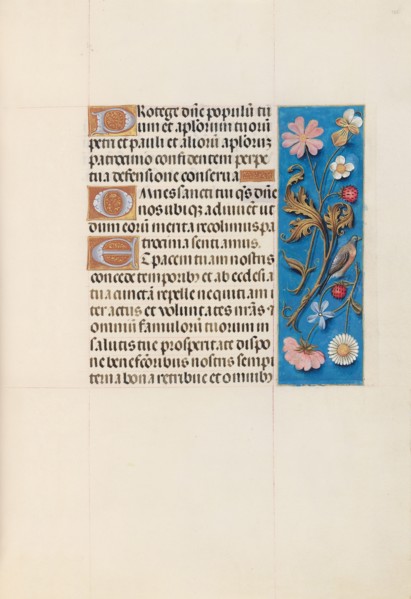 Protege dñe populũ tũ
um et aplorum tuorũ
petri et pauli et aliorũ aplorũ
patrocinio confidentem perpe
tua defensione conserva
Omnes sancti tui q̃s dñe
nos ubiqz adiuvet ut
dum eorũ merita recolimus pa
trocinia sentiamus.
Et pacem tuam nostris
concede temporibz et ab ecclesia
tua cunctã repelle nequitiam i
ter actus et voluntates nr̃as &
omniũ famulorũ tuorum in
salutis tue prosperitate dispo
ne benefcoribus nostris sempi
terna bona retribue et omnibz